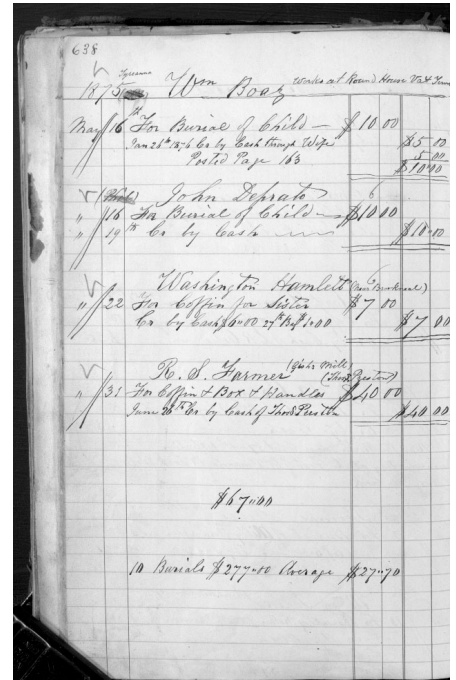 638
1875 Wm Boaz works at Round House Va & Tenn
May 16th For Burial of Child — $10 00
Jan 26th 1876 Cr by Cash through Wife $5 00
Posted Page 163 5 00
$10"00
John Deprato 6
" 16 For Burial of Child — $10 00
" 19th Cr by Cash $10"00
Washington Hamlett
" 22 For Coffin for Sister $7 00
Cr by Cash $6"00 27th By $1"00 $7 00
R. S. Farmer
" 31 For Coffin & Box & Handles $40 00
June 26th Cr by Cash of $40 00
$67"00
10 Burials $277"00 Average $27"70